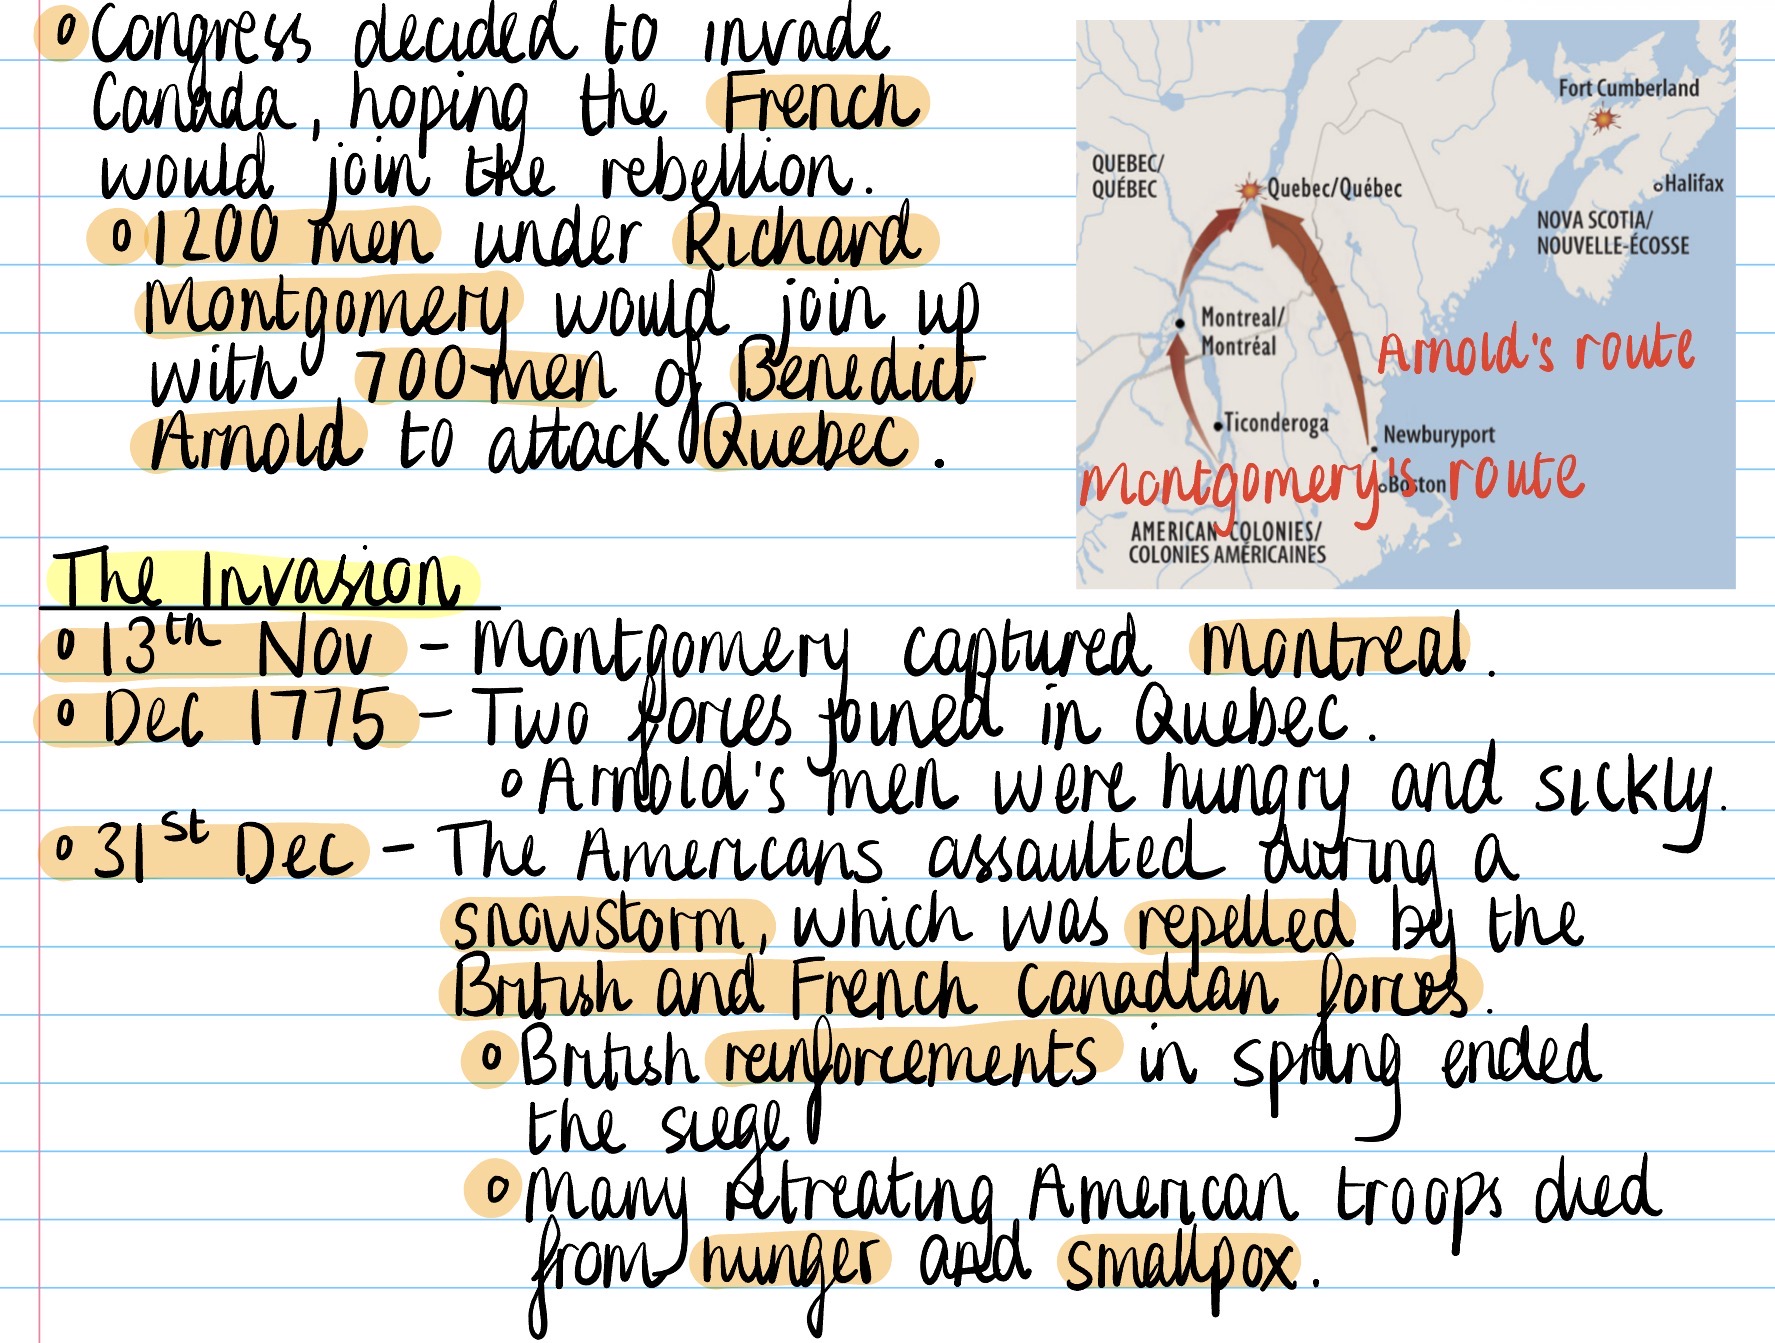 Congress decided to invade
Canada, hoping the French
would join the rebellion.
1200 men under Richard
Montgomery would join up
with 700 men of Benedict
Arnold to attack Quebec.
Fort Cumberland
QUEBEC/
QUÉBEC
Quebec/Québec
Halifax
NOVA SCOTIA/
NOUVELLE-ÉCOSSE
Montreal/
Montréal
Arnold's route
Ticonderoga
Newburyport
Montgomery's route
Boston
AMERICAN COLONIES/
COLONIES AMÉRICAINES
The Invasion
13th Nov – Montgomery captured Montreal.
Dec 1775 – Two forces joined in Quebec.
Arnold's men were hungry and sickly.
31st Dec – The Americans assaulted during a
snowstorm, which was repelled by the
British and French Canadian forces.
British reinforcements in spring ended
the siege
Many retreating American troops died
from hunger and smallpox.